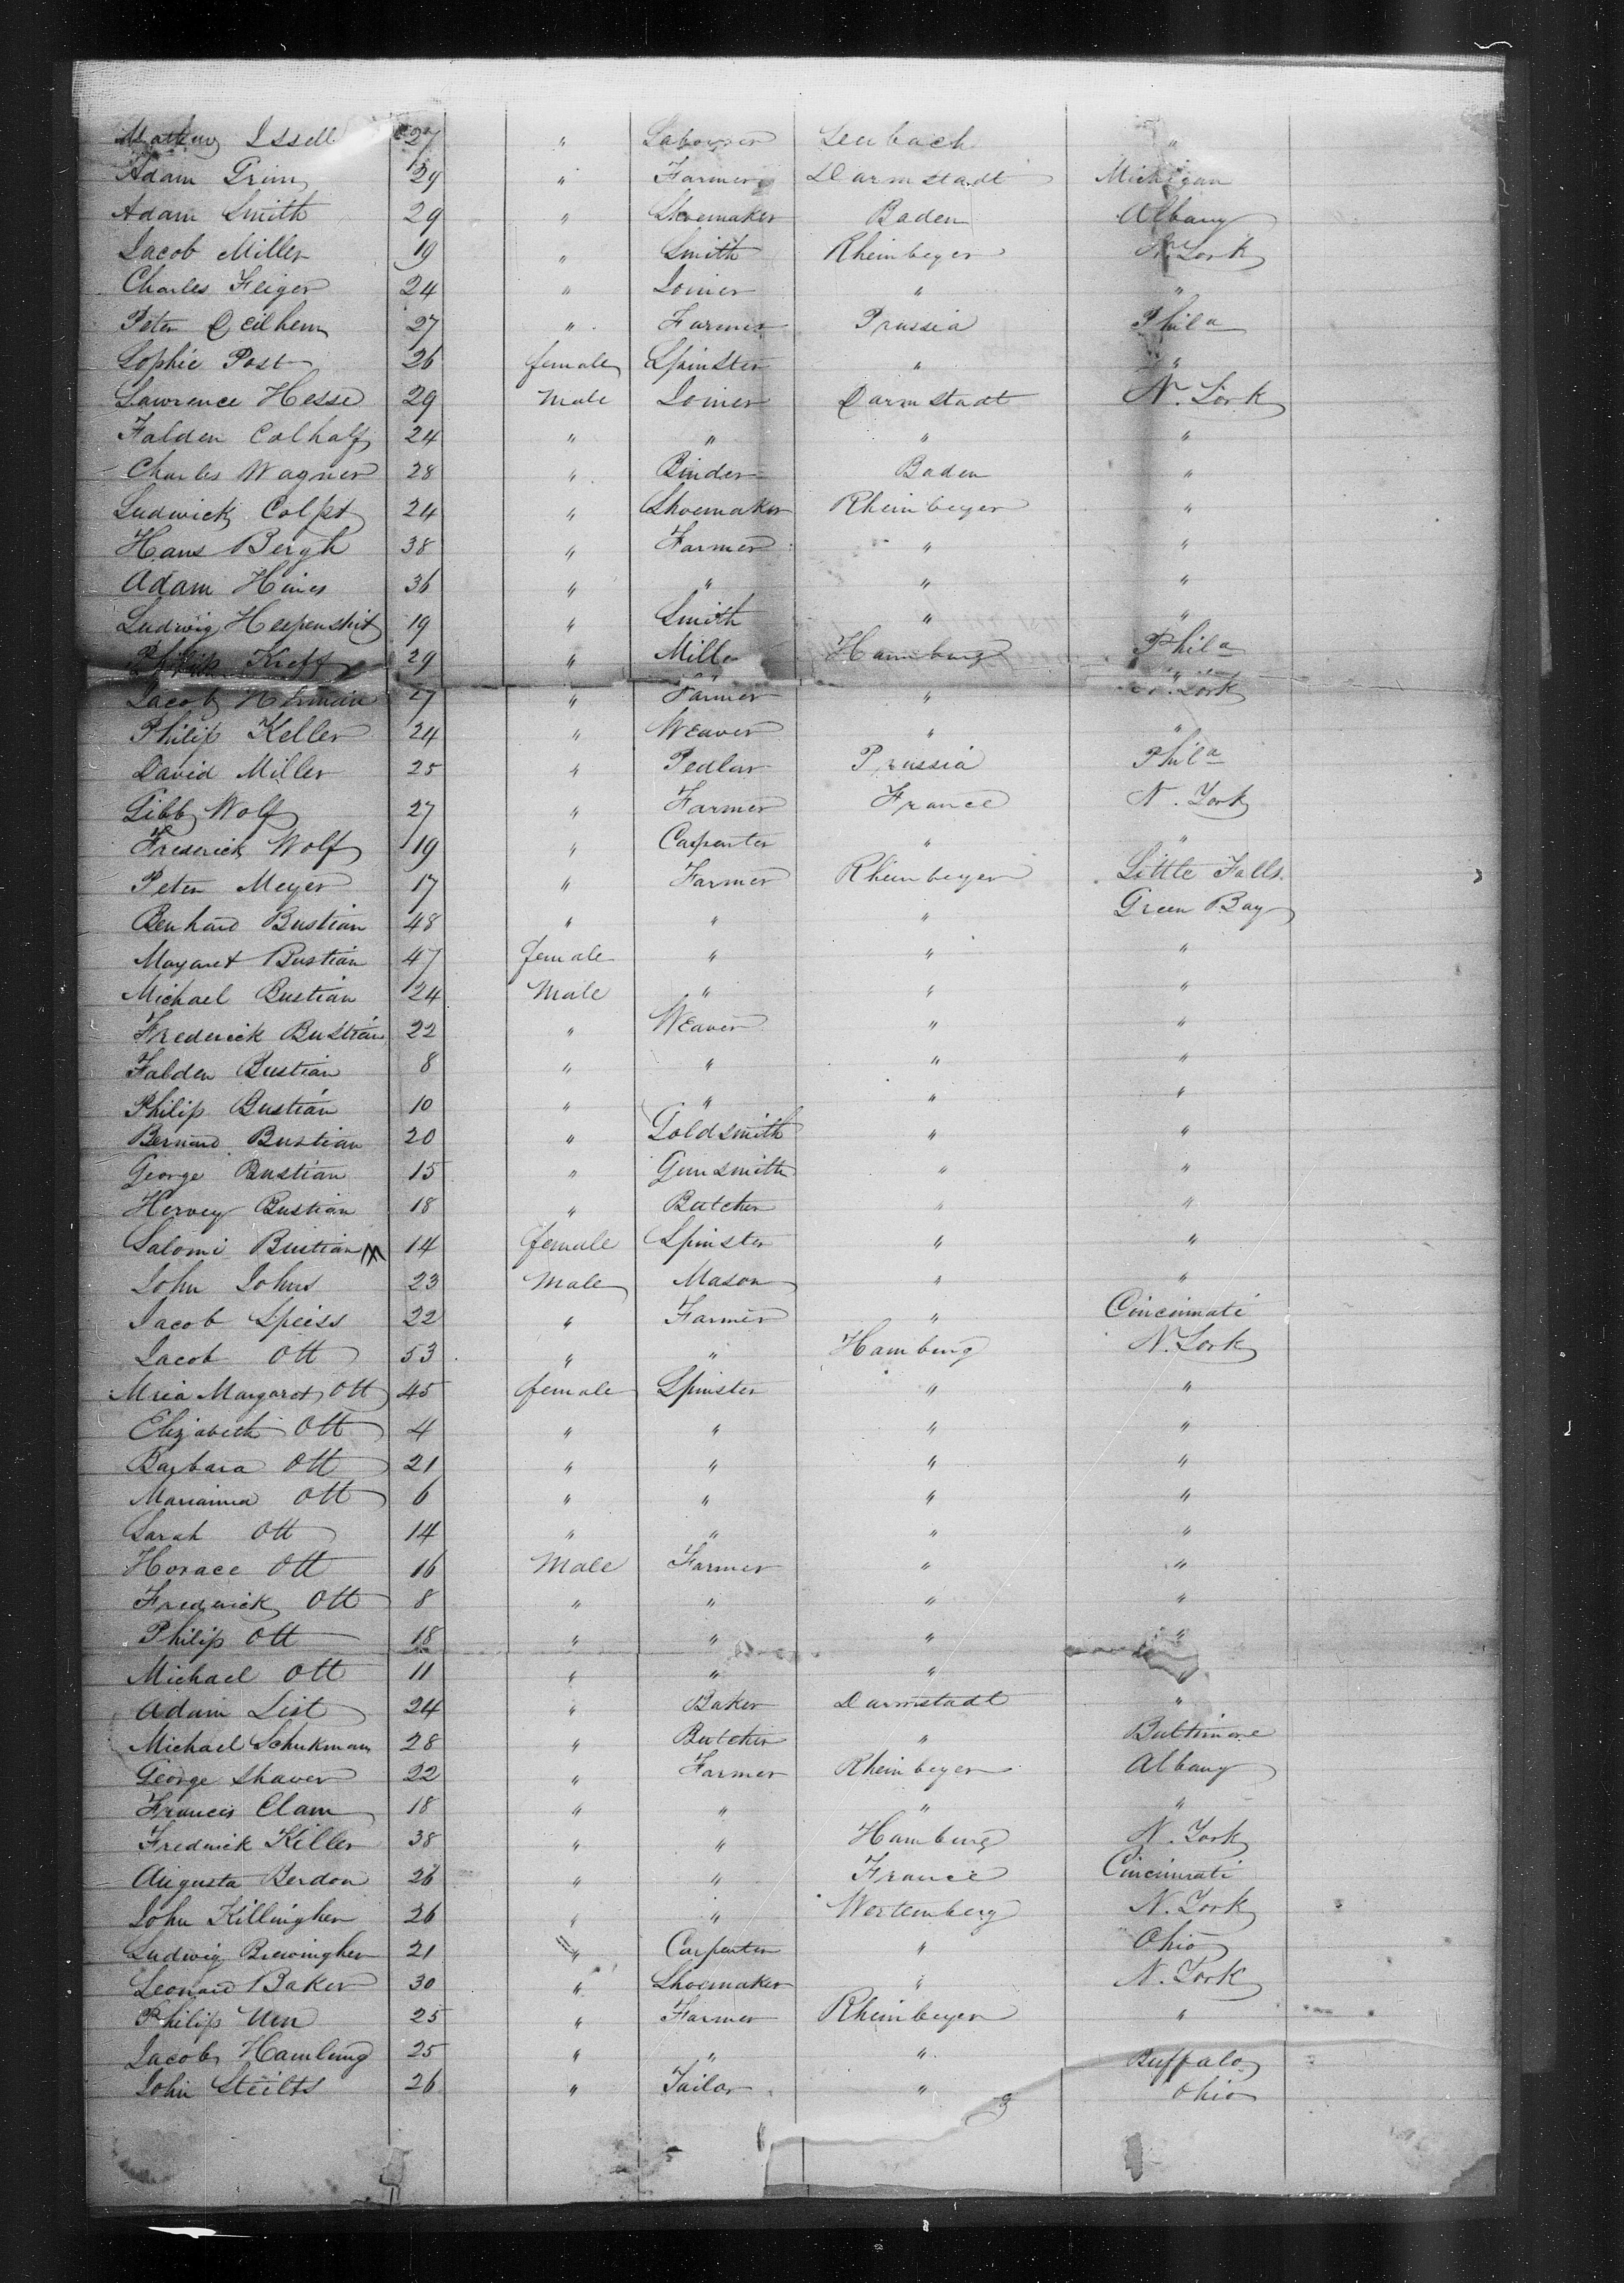 Mathew Issell 27 " Labourer Leubach "
Adam Grim 29 " Farmer Darmstadt Michigan
Adam Smith 29 " Shoemaker Baden Albany
Jacob Miller 19 " Smith Rheinbeyer N. York
Charles Feiger 24 " Joiner " "
Peter Deilhem 27 " Farmer Prussia Phila
Sophie Post 26 female Spinster " "
Lawrence Hesse 29 Male Joiner Darmstadt N. York
Falden Colhalf 24 " " " "
Charles Wagner 28 " Binder Baden "
Ludwick Colpt 24 " Shoemaker Rheinbeyer "
Hans Bergh 38 " Farmer " "
Adam Haines 36 " " " "
Ludwig Heepenshit 19 " Smith " "
Philip Kreff 29 " Miller Hamburg Phila
Jacob Hermein 27 " Farmer " N. York
Philip Keller 24 " Weaver " "
David Miller 25 " Pedlar Prussia Phila
Gibb Wolf 27 " Farmer France N. York
Frederick Wolf 19 " Carpenter " "
Peter Meyer 17 " Farmer Rheinbeyer Little Falls
Benhard Bustian 48 " " " Green Bay
Margaret Bustian 47 female " " "
Michael Bustian 24 Male " " "
Frederick Bustian 22 " Weaver " "
Falden Bustian 8 " " " "
Philip Bustian 10 " " " "
Bernard Bustian 20 " Goldsmith " "
George Bustian 15 " Gunsmith " "
Hervey Bustian 18 " Butcher " "
Salomi Bustian 14 female Spinster " "
John Johns 23 Male Mason " "
Jacob Speiss 22 " Farmer " Cincinnati
Jacob Ott 53 " " Hamburg N. York
Mria Margaret Ott 45 female Spinster " "
Elizabeth Ott 4 " " " "
Barbara Ott 21 " " " "
Marianna Ott 6 " " " "
Sarah Ott 14 " " " "
Horace Ott 16 Male Farmer " "
Frederick Ott 8 " " " "
Philip Ott 18 " " " "
Michael Ott 11 " " "
Adam List 24 " Baker Darmstadt "
Michael Schukman 28 " Butcher " Baltimore
George Shaver 22 " Farmer Rheinbeyer Albany
Francis Clam 18 " " " "
Fredrick Killer 38 " " Hamburg N. York
Augusta Berdon 26 " " France Cincinnati
John Killingher 26 " " Wertemberg N. York
Ludwig Brewingher 21 " Carpenter " Ohio
Leonard Baker 30 " Shoemaker " N. York
Philip Um 25 " Farmer Rheinbeyer "
Jacob Hamlung 25 " " " Buffalo
John Steilts 26 " Tailor " Ohio